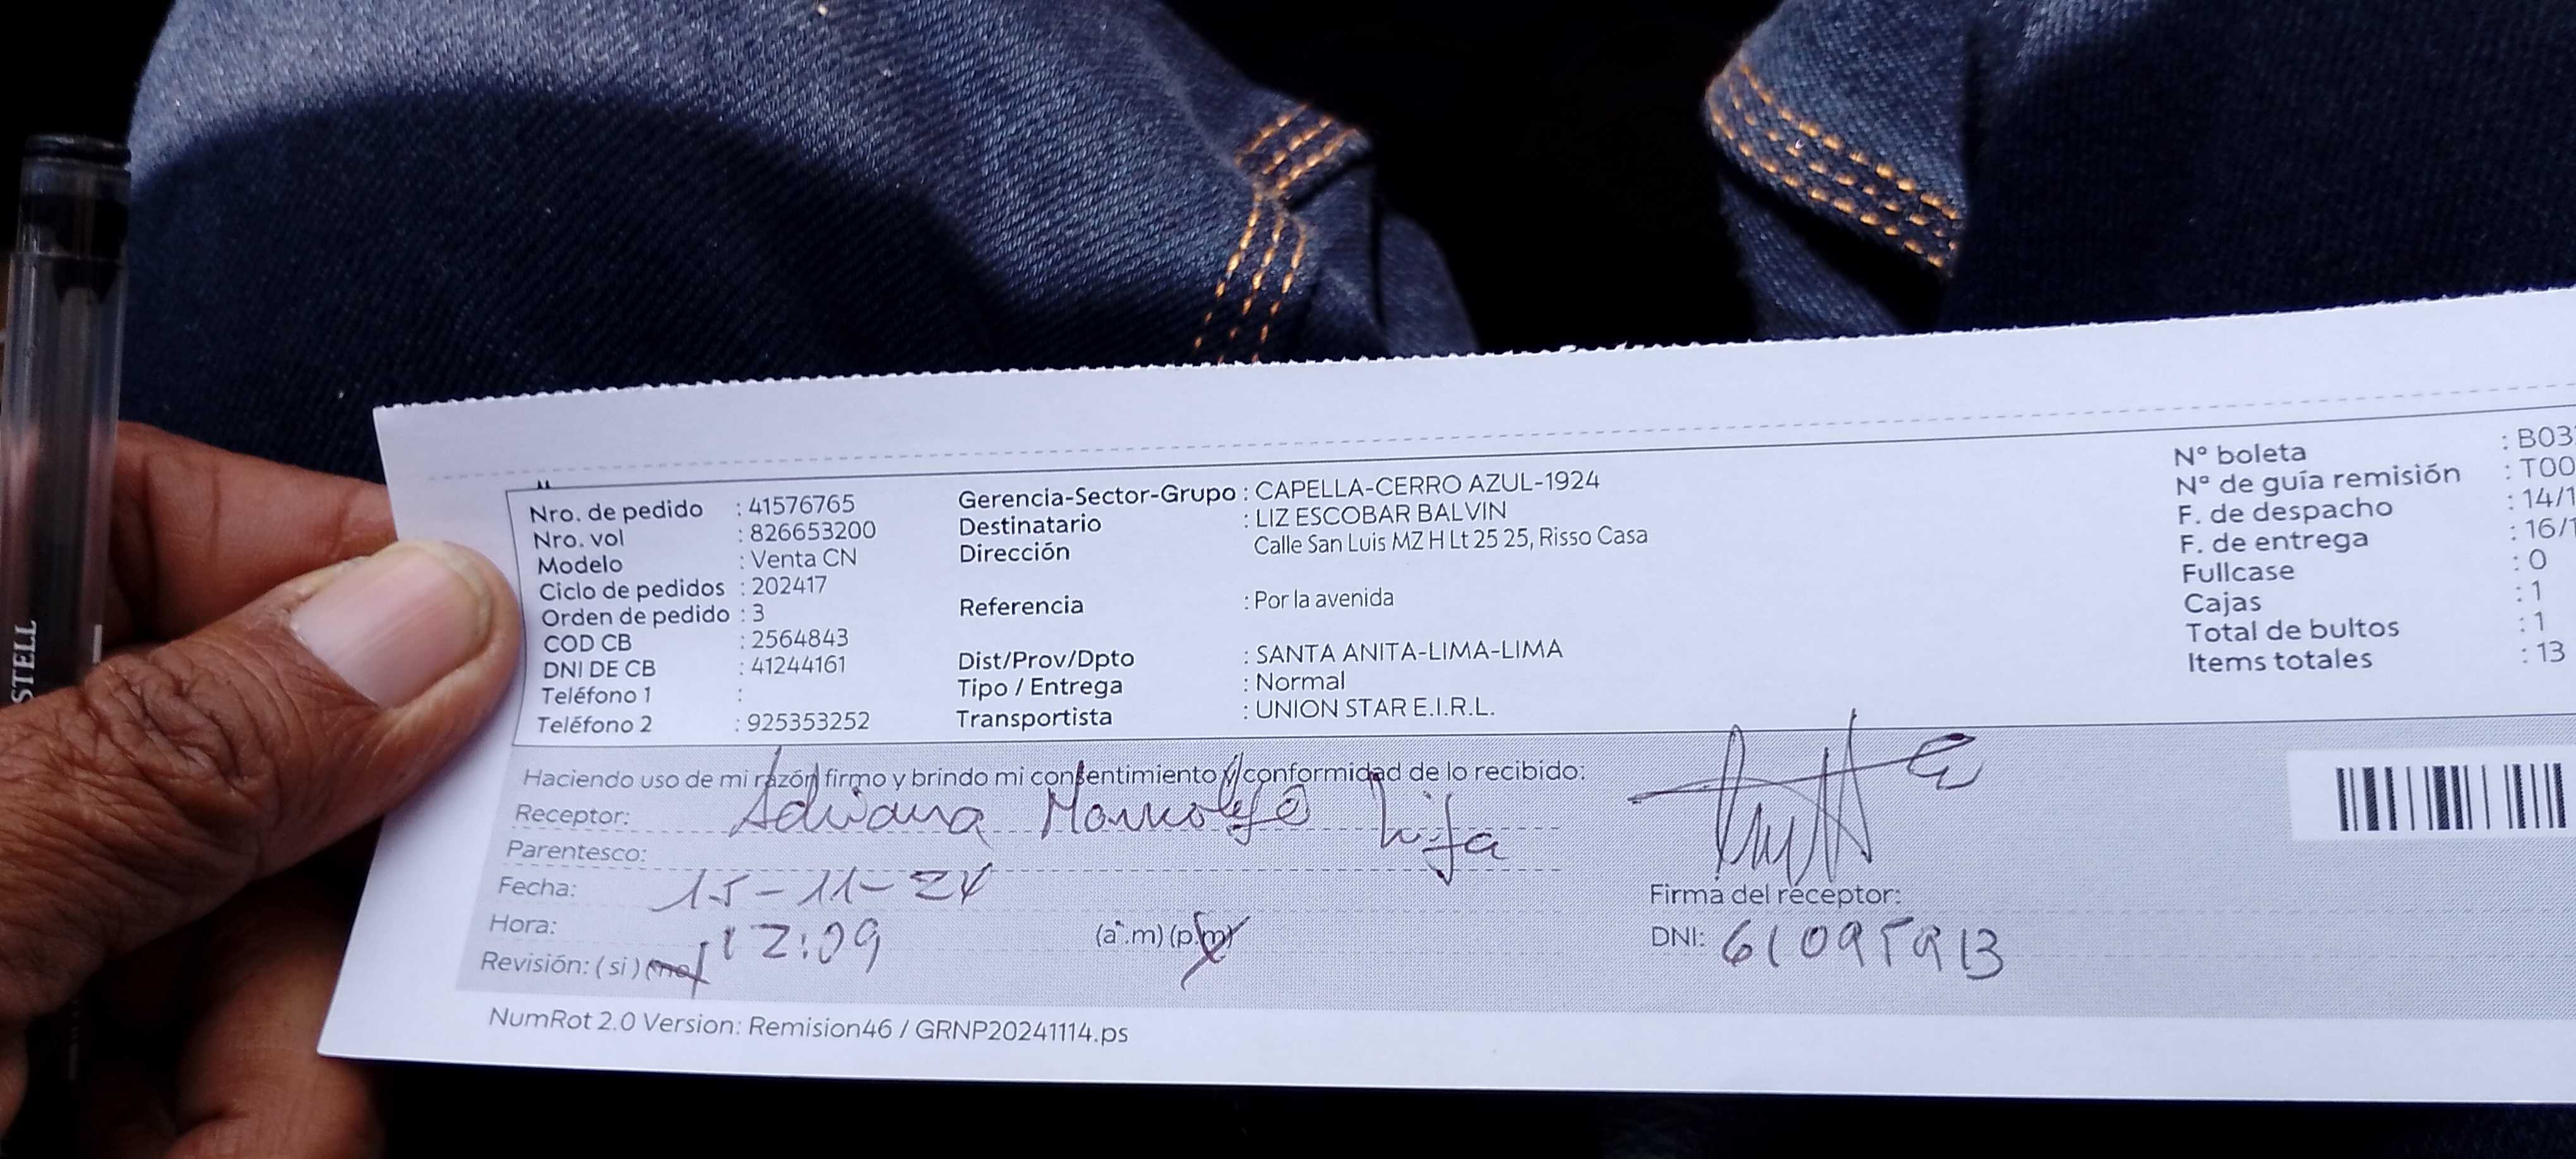 STELL
Nro. de pedido : 41576765
Nro. vol : 826653200
Modelo : Venta CN
Ciclo de pedidos : 202417
Orden de pedido : 3
COD CB : 2564843
DNI DE CB : 41244161
Teléfono 1 :
Teléfono 2 : 925353252
Gerencia-Sector-Grupo : CAPELLA-CERRO AZUL-1924
Destinatario : LIZ ESCOBAR BALVIN
Dirección Calle San Luis MZ H Lt 25 25, Risso Casa
Referencia : Por la avenida
Dist/Prov/Dpto : SANTA ANITA-LIMA-LIMA
Tipo / Entrega : Normal
Transportista : UNION STAR E.I.R.L.
N° boleta : B03
N° de guía remisión : T00
F. de despacho : 14/1
F. de entrega : 16/1
Fullcase : 0
Cajas : 1
Total de bultos : 1
Items totales : 13
Haciendo uso de mi razón firmo y brindo mi consentimiento y conformidad de lo recibido:
Receptor: Adriana hija
Parentesco:
Fecha: 15-11-24
Hora: 12:09 (a.m) (p.m)
Revisión: (si) (no)
Firma del receptor:
DNI: 61095913
NumRot 2.0 Version: Remision46 / GRNP20241114.ps